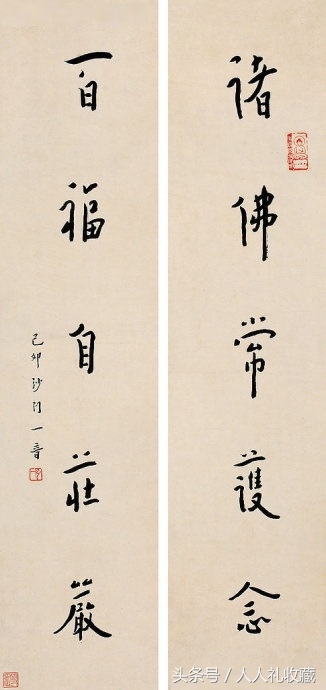 諸佛常護念
百福自莊嚴
己卯沙門一音
头条号／人人礼收藏